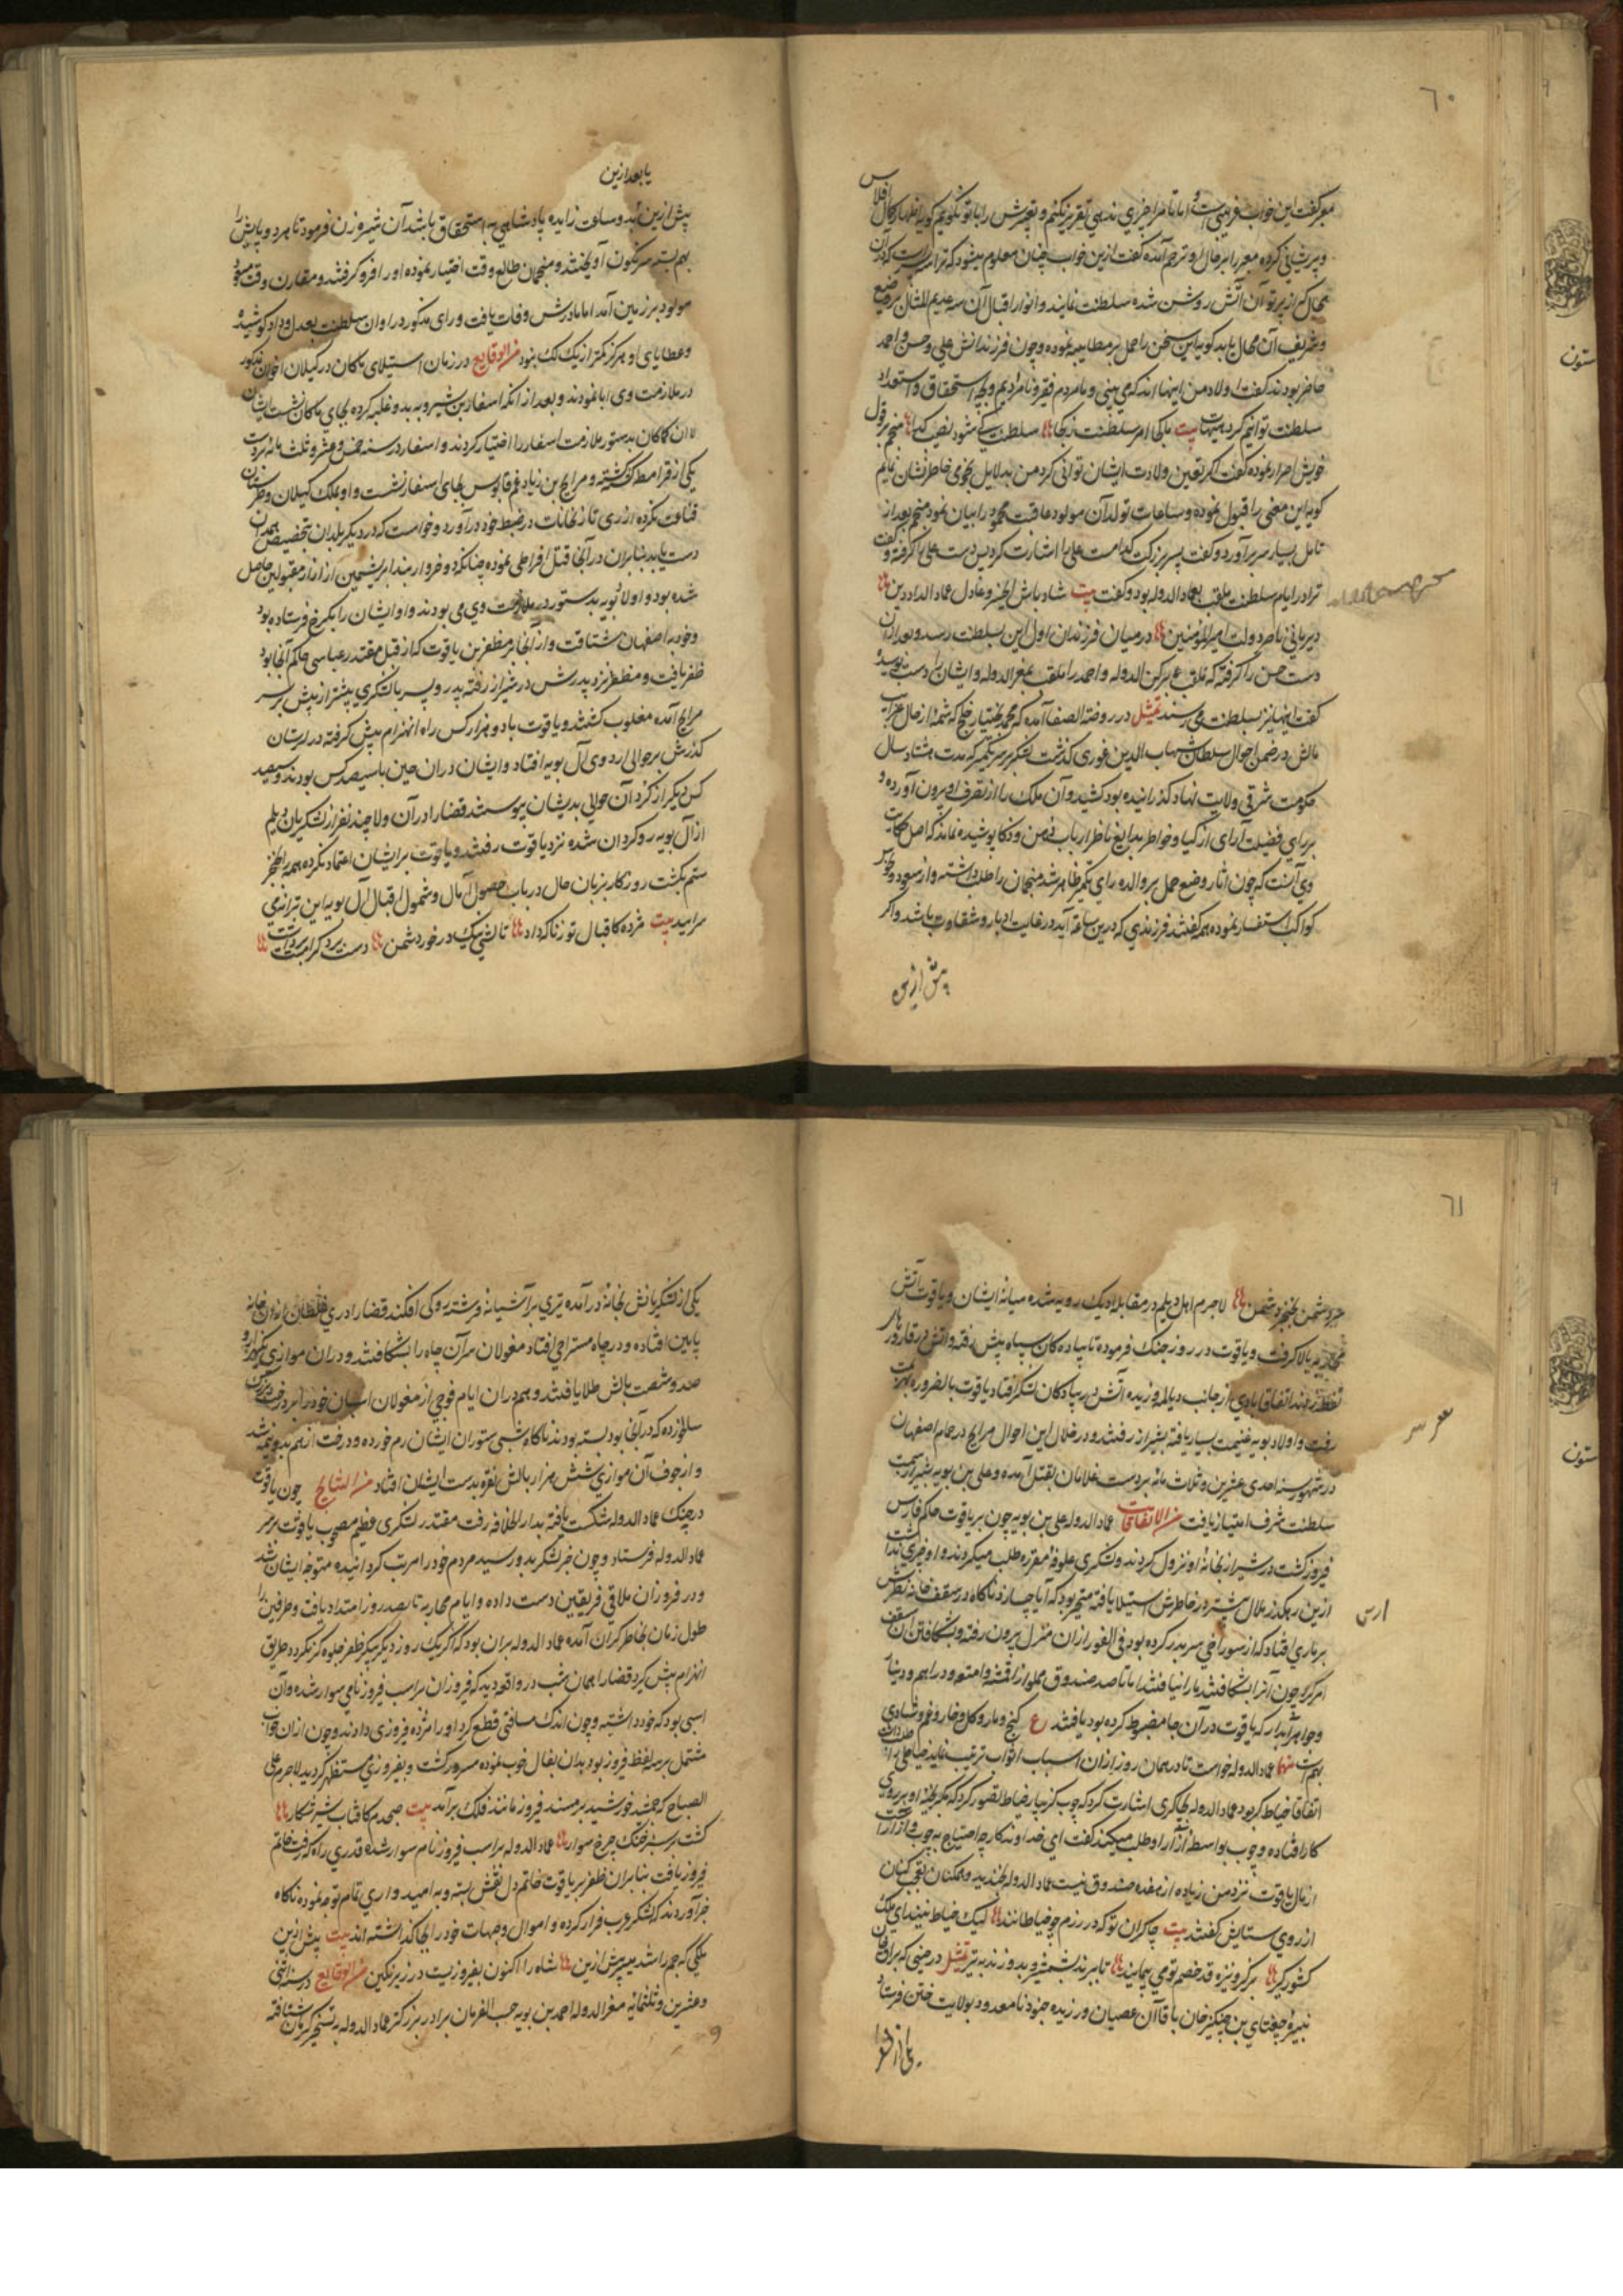 ٦٠
معبر گفت این خواب غریبی است و اما تا مرا چیزی ندهی تقریر نکنم و تعبیرش را با تو نگویم گویه اظهار حال افلاس
و پریشانی کرده معبر را بر حال او ترحم آمده گفت ازین خواب چنان معلوم میشود که ترا سه پسر است که در آن
محال که از پرتو آن آتش روشن شده سلطنت نمایند و انوار اقبال آن سه عدیم المثال بر وضیع
و شریف آن محال تابد گویه این سخن را حمل بر مطایبه نموده و چون فرزندانش علی و حسن و احمد
حاضر بودند گفت اولاد من اینها اند که می بینی و ما مردم فقیر و نامرادیم و بچه استحقاق و استعداد
سلطنت توانیم کرد هیهات بیت ما کجا امر سلطنت ز کجا سلطنت کی شود نصیب گدا منجم بر قول
خویش اصرار نموده گفت اگر تعین ولادت ایشان توانی کرد من بدلایل نجومی خاطرنشان نمایم
گویه این معنی را قبول نموده و ساعات تولد آن مولود عاقبت محمود را بیان نمود منجم بعد از
تامل بسیار سر برآورد و گفت پسر بزرگت کدامست علی را اشارت کرد پس دست علی را گرفته و گفت
ترا در ایام سلطنت ملقب بعماد الدوله بود و گفت بیت شاد باش ای خسرو عادل عماد الداد دین
دیر مانی ناصر دولت امیر المؤمنین در میان فرزندان اول این بسلطنت رسد و بعد ازان
دست حسن را گرفته که ملقب برکن الدوله و احمد را ملقب بمعز الدوله و ایشان را دست بوسیده
گفت اینها نیز بسلطنت می رسند تمثیل در روضة الصفا آمده که محمد بختیار خلج که شمهٔ از حال غرایب
مالش در ضمن احوال سلطان شهاب الدین غوری گذشت لشکر بر سر یتمیر که مدت هشتاد سال
حکومت شرقی ولایت نهاد گذرانیده بود کشید و آن ملک را از تصرف او بیرون آورده و
بر رای فضیلت آرای ازکیا و خواطر بدایع ناظر ارباب ذهن و ذکا پوشیده نماند که اصل حکایت
وی آنست که چون آثار وضع حمل بر والده رای یتمیر ظاهر شد منجمان را طلب داشته و از سعود و نحوس
کواکب استفسار نموده همه گفتند فرزندی که درین ساعة آید در غایت ادبار و شقاوت باشد و اگر
پیش ازین
یا بعد ازین
پیش ازین بدو ساعت زاییده پادشاهی با استحقاق باشد آن شیر زن فرمود تا هر دو پایش را
بهم بسته سرنگون آویختند و منجمان طالع وقت اختیار نموده او را فرو گرفتند و مقارن وقت مسعود
مولود بر زمین آمد اما مادرش وفات یافت و رای مذکور در اوان سلطنت بعدل و داد کوشیده
و عطایای او هرگز کمتر از یک لک نبود من الوقایع در زمان استیلای ماکان در گیلان اخوان مذکور
در ملازمت وی ابا نمودند و بعد از آنکه اسفار بن شیرویه بدو غلبه کرده بجای ماکان نشست ایشان
کما کان بدستور ملازمت اسفار را اختیار کردند و اسفار در سنه خمس و عشر و ثلث مائه بر دست
یکی از قرامطه کشته و مرداویج بن زیاد عم قابوس بجای اسفار نشست و او بملک گیلان و طبرستان
قناعت نکرده از ری تا زنجانات در ضبط خود درآورد و خواست که در دیگر بلدان بتخصیص همدان
دست یابد بنابران در آنجا قتل افراطی نموده چنانکه دو خروار بند ابریشمین از ازار مقتولین حاصل
شده بود و اولاد بویه بدستور در ملازمت وی می بودند و او ایشان را بکرخ فرستاده بود
و خود به اصفهان شتافت و از آنجا بر مظفر بن یاقوت که از قبل مقتدر عباسی حاکم آنجا بود
ظفر یافت و مظفر نزد پدرش در شیراز رفته پدر و پسر با لشکری بیشتر از پیش بر سر
مراویج آمده مغلوب گشتند و یاقوت با دو هزار کس راه انهزام پیش گرفته در لرستان
گذرش بر حوالی اردوی آل بویه افتاد و ایشان در ان حین با سیصد کس بودند و سیصد
کس دیگر از کرد آن حوالی بدیشان پیوستند قضا را در آن ولا چند نفر از لشکریان دیلم
از آل بویه روگردان شده نزد یاقوت رفتند و یاقوت بر ایشان اعتماد نکرده همه را بخنجر
ستم بکشت روزگار بزبان حال در باب حصول آمال و شمول اقبال آل بویه این ترانه می
سرایید بیت مژده کاقبال تو زنا که داد تا کشی یک در خورد شمن دست
٦١
خود دشمن بخنجر دشمن لاجرم اهل دیلم در مقابله ادیک رویه شده میانهٔ ایشان و یاقوت آتش
محاربه بالا گرفت و یاقوت در روز جنگ فرموده تا پیاده کان سپاه پیش رفته و آتش در قاروره های
نفط زدند اتفاقا بادی از جانب دیالمه وزیده آتش در پیادکان لشکر افتاد یاقوت بالضروره بهزیمت
رفت و اولاد بویه غنیمت بسیار یافته بشیراز رفتند و در خلال این احوال مراویج در حمام اصفهان
در شهور سنه احدی عشرین و ثلاث مائه بر دست غلامان بقتل آمده و علی بن بویه بشیراز بسمت
سلطنت شرف امتیاز یافت من الاتفاقات عماد الدوله علی بن بویه چون بر یاقوت حاکم فارس
فیروز گشت در شیراز بخانهٔ او نزول کردند و لشکری علوفهٔ مقرره طلب میکردند و او چیزی نداشت
ازین رهگذر ملال بیشتر در خاطرش استیلا یافته متحیر بود که آیا چسازد ناگاه در سقف خانه نظرش
بر ماری افتاد که از سوراخی سر بدر کرده بود فی الفور از ان منزل بیرون رفته و بشکافتن آن سقف
امر کرد چون آنرا بشکافتند مار را نیافتند اما تا صد صندوق مملو از اقمشه و امتعه و دراهم و دنانیر
و جواهر آبدار که یاقوت در آن جا مضبوط کرده بود یافتند ع گنج و مار و گل و خار و غم و شادی
بهم است منها عماد الدوله خواست تا در همان روز از ان اسباب اثواب ترتیب نماید
اتفاقا خیاط کر بود عماد الدوله بچاکری اشارت کرد که چوب گز بیار خیاط تصور کرد که مگر بخیهٔ او بر روی
کار افتاده و چوب بواسطهٔ آزار او طلب میکنند گفت ای خداوندگار چه احتیاج به چوب و آزار است
از مال یاقوت نزد من زیاده از هفده صندوق نیست عماد الدوله بخندید و همکنان تعجب کنان
از روی ستایش گفتند بیت چاکران تو که در رزم چو خیاطانند لیک خیاط نیند ای ملک
کشورگیر بر گز و نیزه قد خصم تو می پیمایند تا ببرند بشمشیر و بدوزند به تیر تمثیل در حینی که براق خان
نبیرهٔ چغتای بن چنگیز خان با قاآن عصیان ورزیده جنود نامعدود بولایت ختن فرستاد
یکی از لشکریانش بخانهٔ درآمده تیری بر آشیانهٔ فرشته روکی افکند قضا را دری غلطان ازان خانه
پایین افتاده و در چاه مستراحی افتاد مغولان سر آن چاه را بشکافتند و دران موازی یکهزار و
صد و شصت بالش طلا یافتند و هم در ان ایام فوجی از مغولان اسپان خود را بر درخت بزرگ
سالخورده که در آنجا بود بسته بودند ناگاه شبی ستوران ایشان رم خورده و درخت از هم بدو نیمه شد
و از جوف آن موازی شش هزار بالش نقره بدست ایشان افتاد من النتایج چون یاقوت
در جنگ عماد الدوله شکست یافته بدار الخلافه رفت مقتدر لشکری عظیم مصحوب یاقوت بر سر
عماد الدوله فرستاد و چون خبر لشکر بدو رسید مردم خود را مرتب گردانیده متوجه ایشان شد
و در فروزان ملاقی فریقین دست داده و ایام محاربه تا بصد روز امتداد یافت و طرفین را
طول زمان بخاطر گران آمده عماد الدوله بران بود که اگر یک روز دیگر پیکر ظفر جلوه گر نگردد طریق
انهزام پیش گیرد قضا را همان شب در واقعه دید که فیروزان بر اسب فیروز نامی سوار شده و آن
اسبی بود که خود داشته و چون اندک مسافتی قطع کرد او را مژدهٔ فیروزی دادند و چون از ان خواب
مشتمل بر سه لفظ فیروز بود بدان تفال خوب نموده مسرور گشت و بفیروزی مستظهر گردید لاجرم علی
الصباح که جمشید خورشید بر مسند فیروز مانند فلک برآمد بیت صبحدم کافتاب شیر شکار
گشت بر سبز خنگ چرخ سوار عماد الدوله بر اسب فیروز نام سوار شده قدری راه که رفت خاتم
فیروز یافت بنابران ظفر بر یاقوت خاتم دل نقش بسته و به امیدواری تمام توجه نموده ناگاه
خبر آوردند که لشکر عرب فرار کرده و اموال و جهات خود را بجا گذاشته اند بیت پیش ازین
ملکی که جم را شد میسر پیش ازین شاه را اکنون بفیروزیست در زیر نگین من الوقایع در سنه اثنی
و عشرین و ثلثمائه معز الدوله احمد بن بویه حسب الفرمان برادر بزرگتر عماد الدوله به تسخیر کرمان شتافته